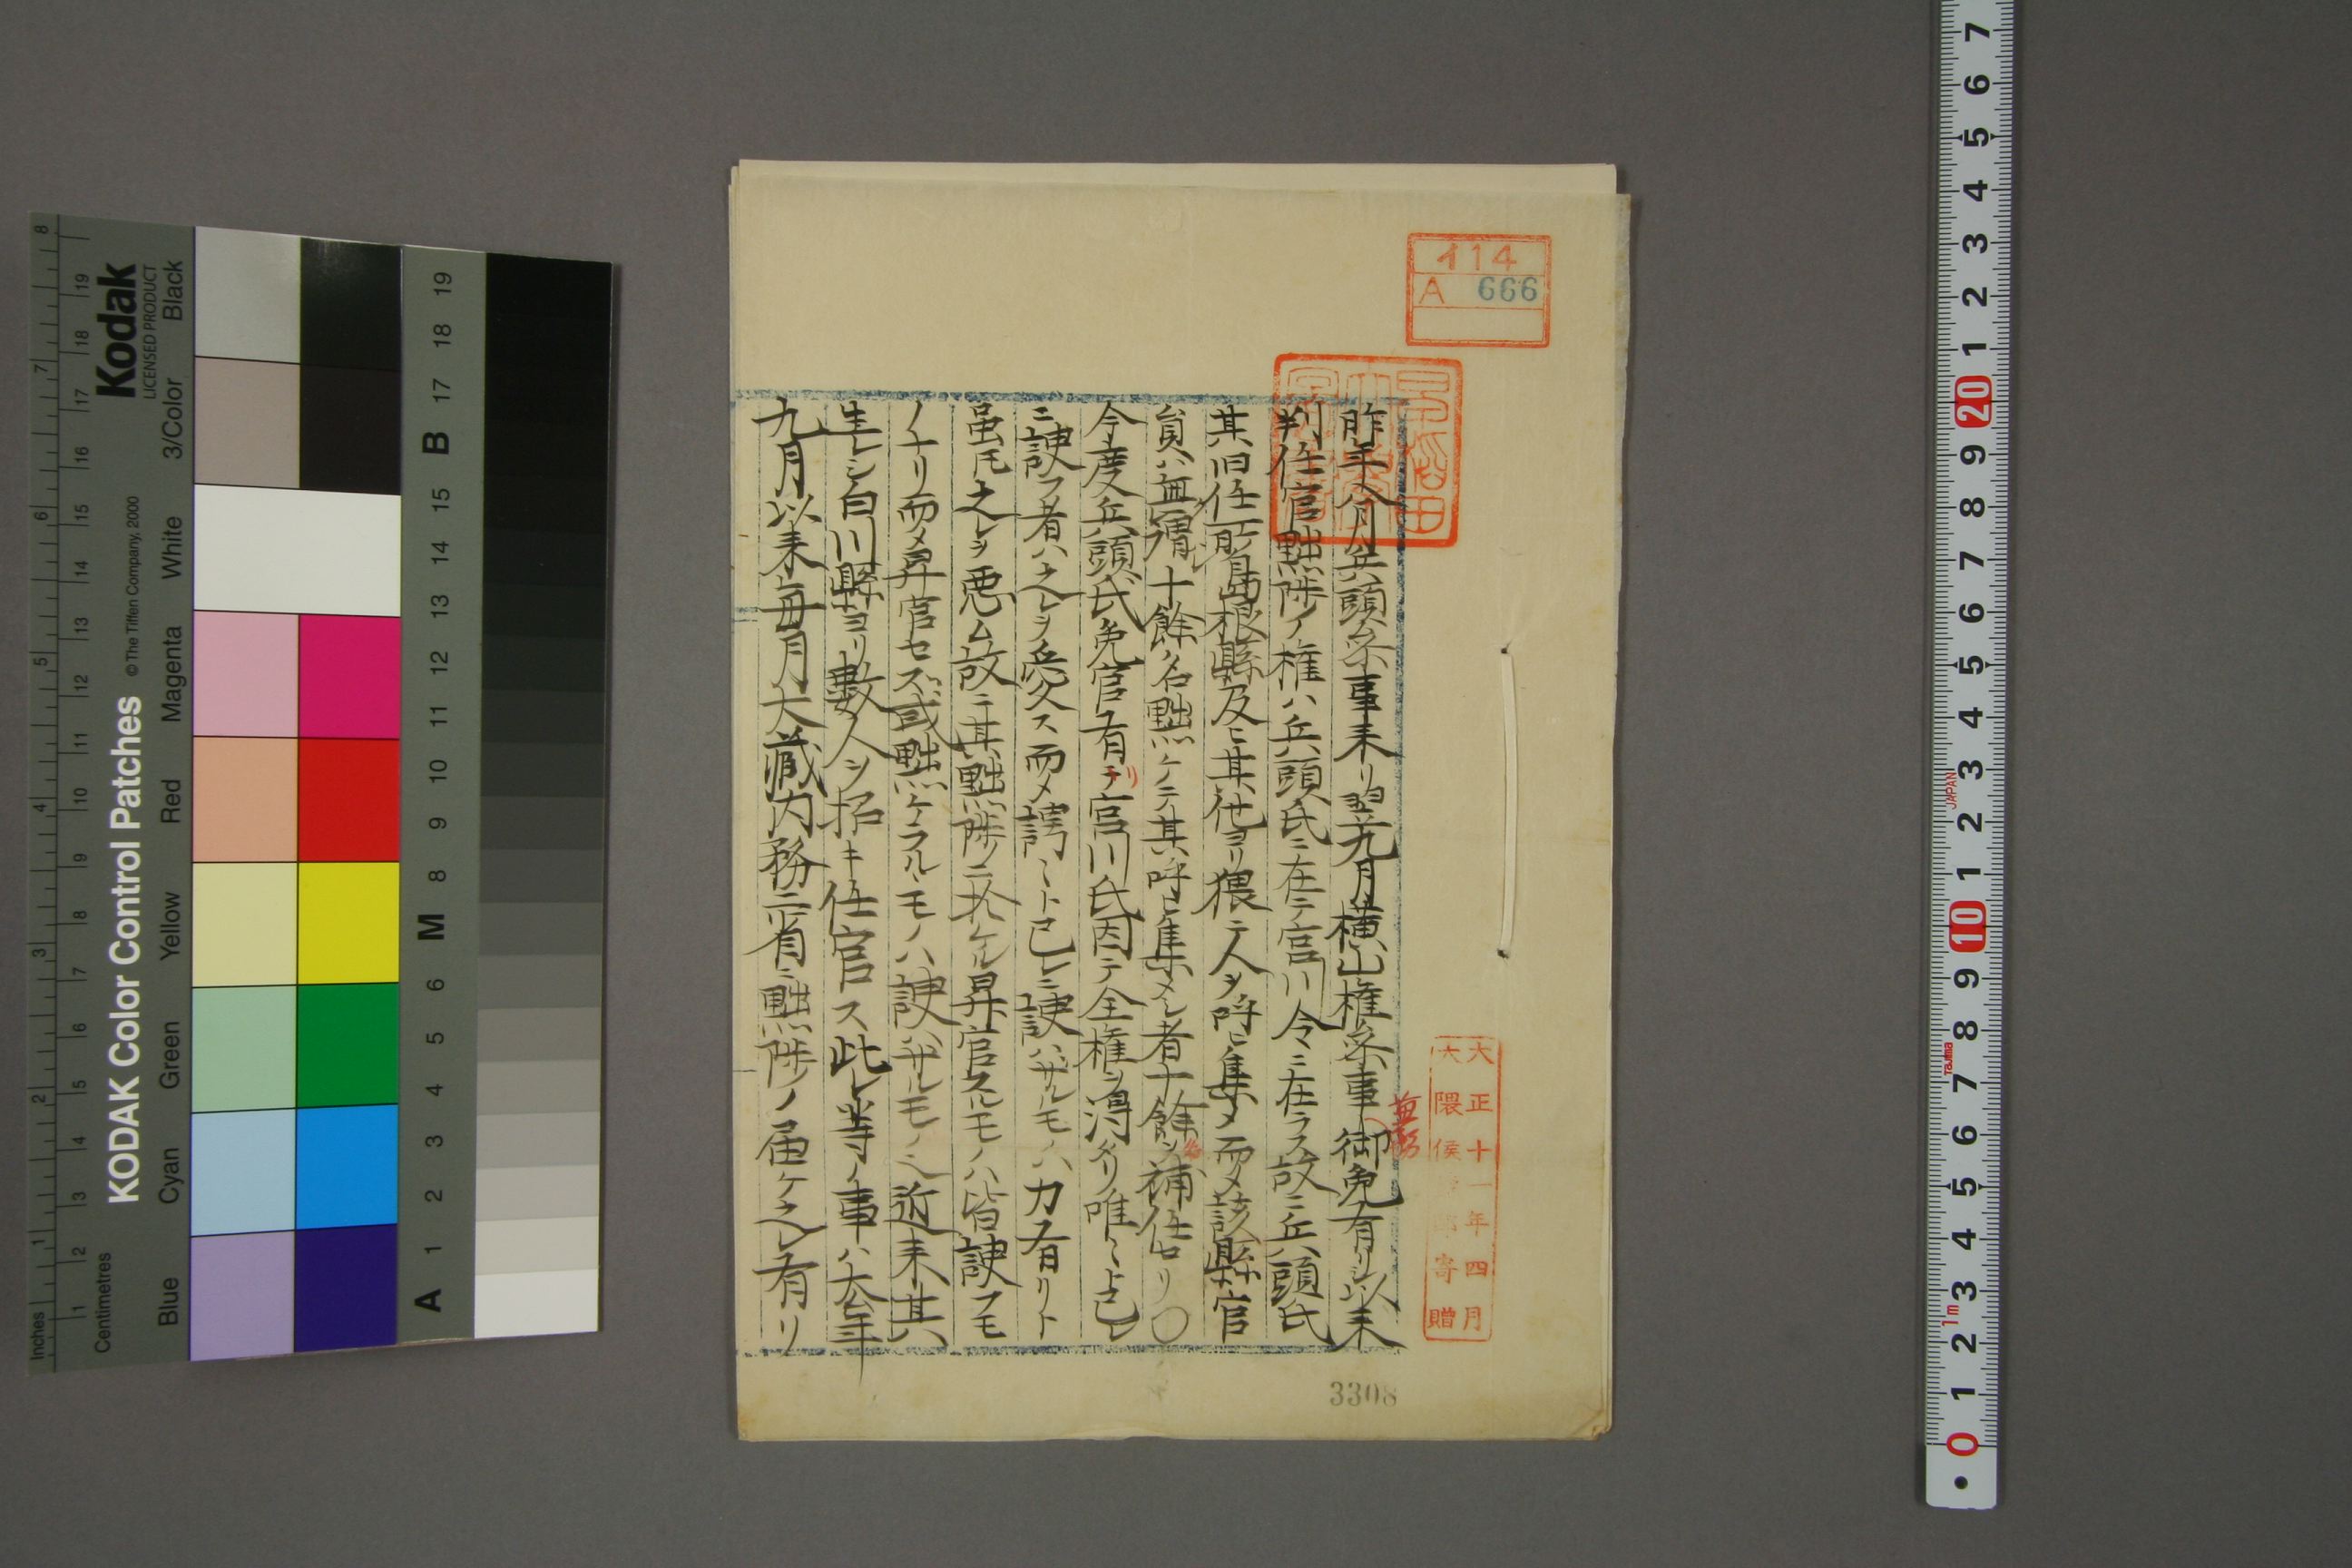 昨年八月兵頭参事来リ翌九月横山権参事御免有リシ以来
判任官黜陟ノ権ハ兵頭氏ニ在テ宮川令ニ在ラス故ニ兵頭氏
其旧任所島根縣及ヒ其他ヨリ猥ニ人ヲ呼ヒ集メ而メ該縣官
員ハ無謂十餘名黜ケテ其呼ヒ集メシ者十餘名ヲ補任セリ〇
今度兵頭氏免官有リ宮川氏因テ全権ヲ得タリ唯々己レ
ニ諛フ者ハ之レヲ愛ス而メ諤々ト己レニ諛ハザルモノハ力有リト
虽モ之レヲ悪ム故ニ其黜陟ノ二ツニ於ケル昇官スルモノハ皆諛フモ
ノナリ而メ昇官セズ或黜ケラルヽモノハ諛ハザルモノ也近来其
生レシ白川縣ヨリ數人ヲ招キ任官ス此レ等ノ事ハ六年
九月以来毎月大蔵内務二省ニ黜陟ノ届ケ之有リ
イ14
A 666
大正十一年四月
大隈侯 寄贈
3308
KODAK Color Control Patches © The Tiffen Company, 2000
Kodak
LICENSED PRODUCT
Inches
Centimetres
Blue Cyan Green Yellow Red Magenta White 3/Color Black
A 1 2 3 4 5 6 M 8 9 10 11 12 13 14 15 B 17 18 19
JAPAN
Tajima
1m